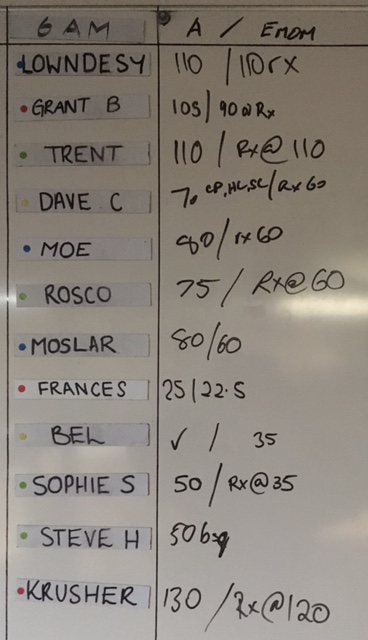 6 AM A / EMOM
LOWNDESY 110 / 110rx
GRANT B 105 / 90@Rx
TRENT 110 / Rx@110
DAVE C 70 CP, HC, SC / Rx 60
MOE 80 / rx 60
ROSCO 75 / Rx@60
MOSLAR 80/60
FRANCES 25 / 22.5
BEL ✓ / 35
SOPHIE S 50 / Rx@35
STEVE H
KRUSHER 130 / Rx@120